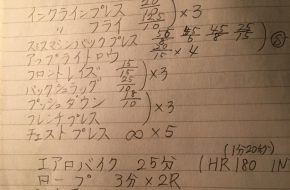 インクラインプレス 20/12.5 ×3
〃 フライ 12.5/10
スミスマシンバックプレス 50/ 45/6 45/8 25/15 ⑤
アップライトロウ 20/15 ×4
フロントレイズ 15/15
バックシュラッグ 25/15 ×3
プッシュダウン 18/10
フレンチプレス ×3
チェストプレス ∞×5
(1分20秒)
エアロバイク 25分 (HR 180 IN
ロープ 3分×2R